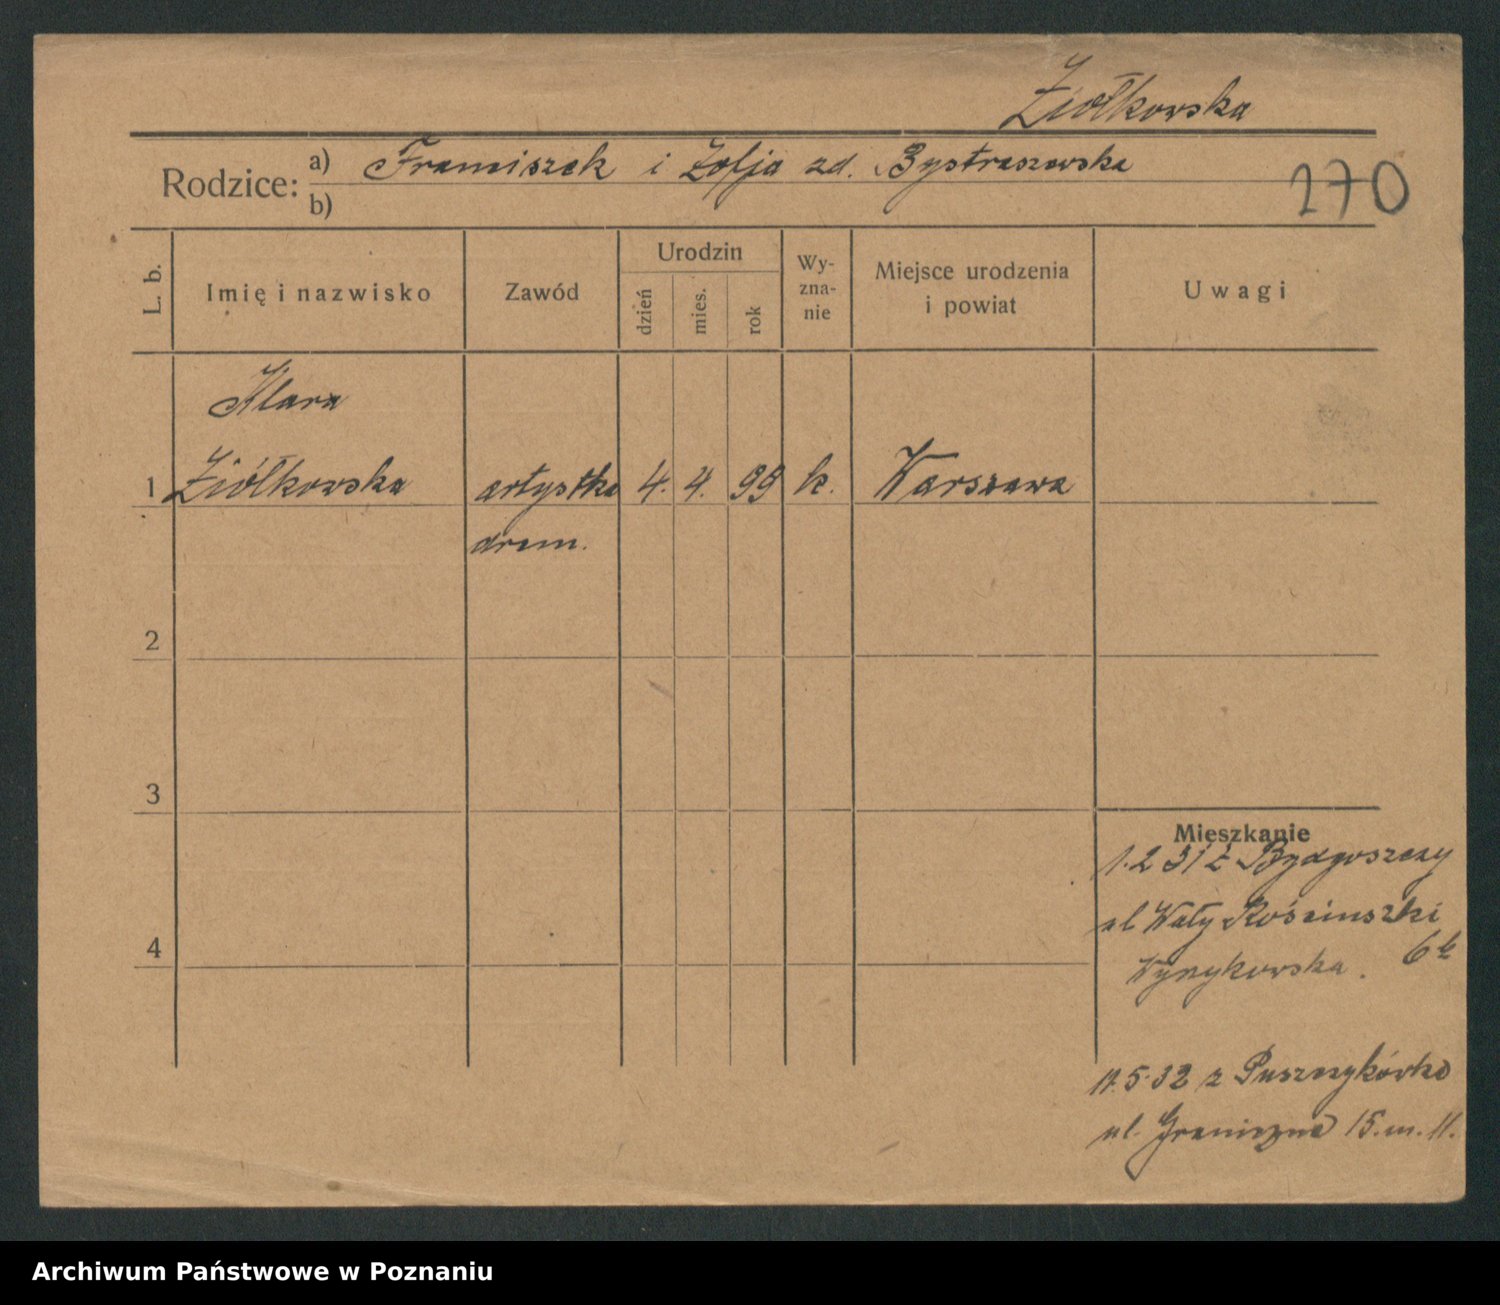 Ziółkowska
Rodzice: a) Franciszek i Zofja zd. Bystraszewska
b)
270
L. b. Imię i nazwisko Zawód Urodzin dzień mies. rok Wy-zna-nie Miejsce urodzenia i powiat Uwagi
Klara
1 Ziółkowska artystka 4. 4. 99 k. Warszawa
dram.
2
3
Mieszkanie
1.2 31 z Bydgoszczy
ul Wały Kościuszki
4
6
11.5.32 z Puszczykówko
ul. Graniczna 15. m. 11.
Archiwum Państwowe w Poznaniu